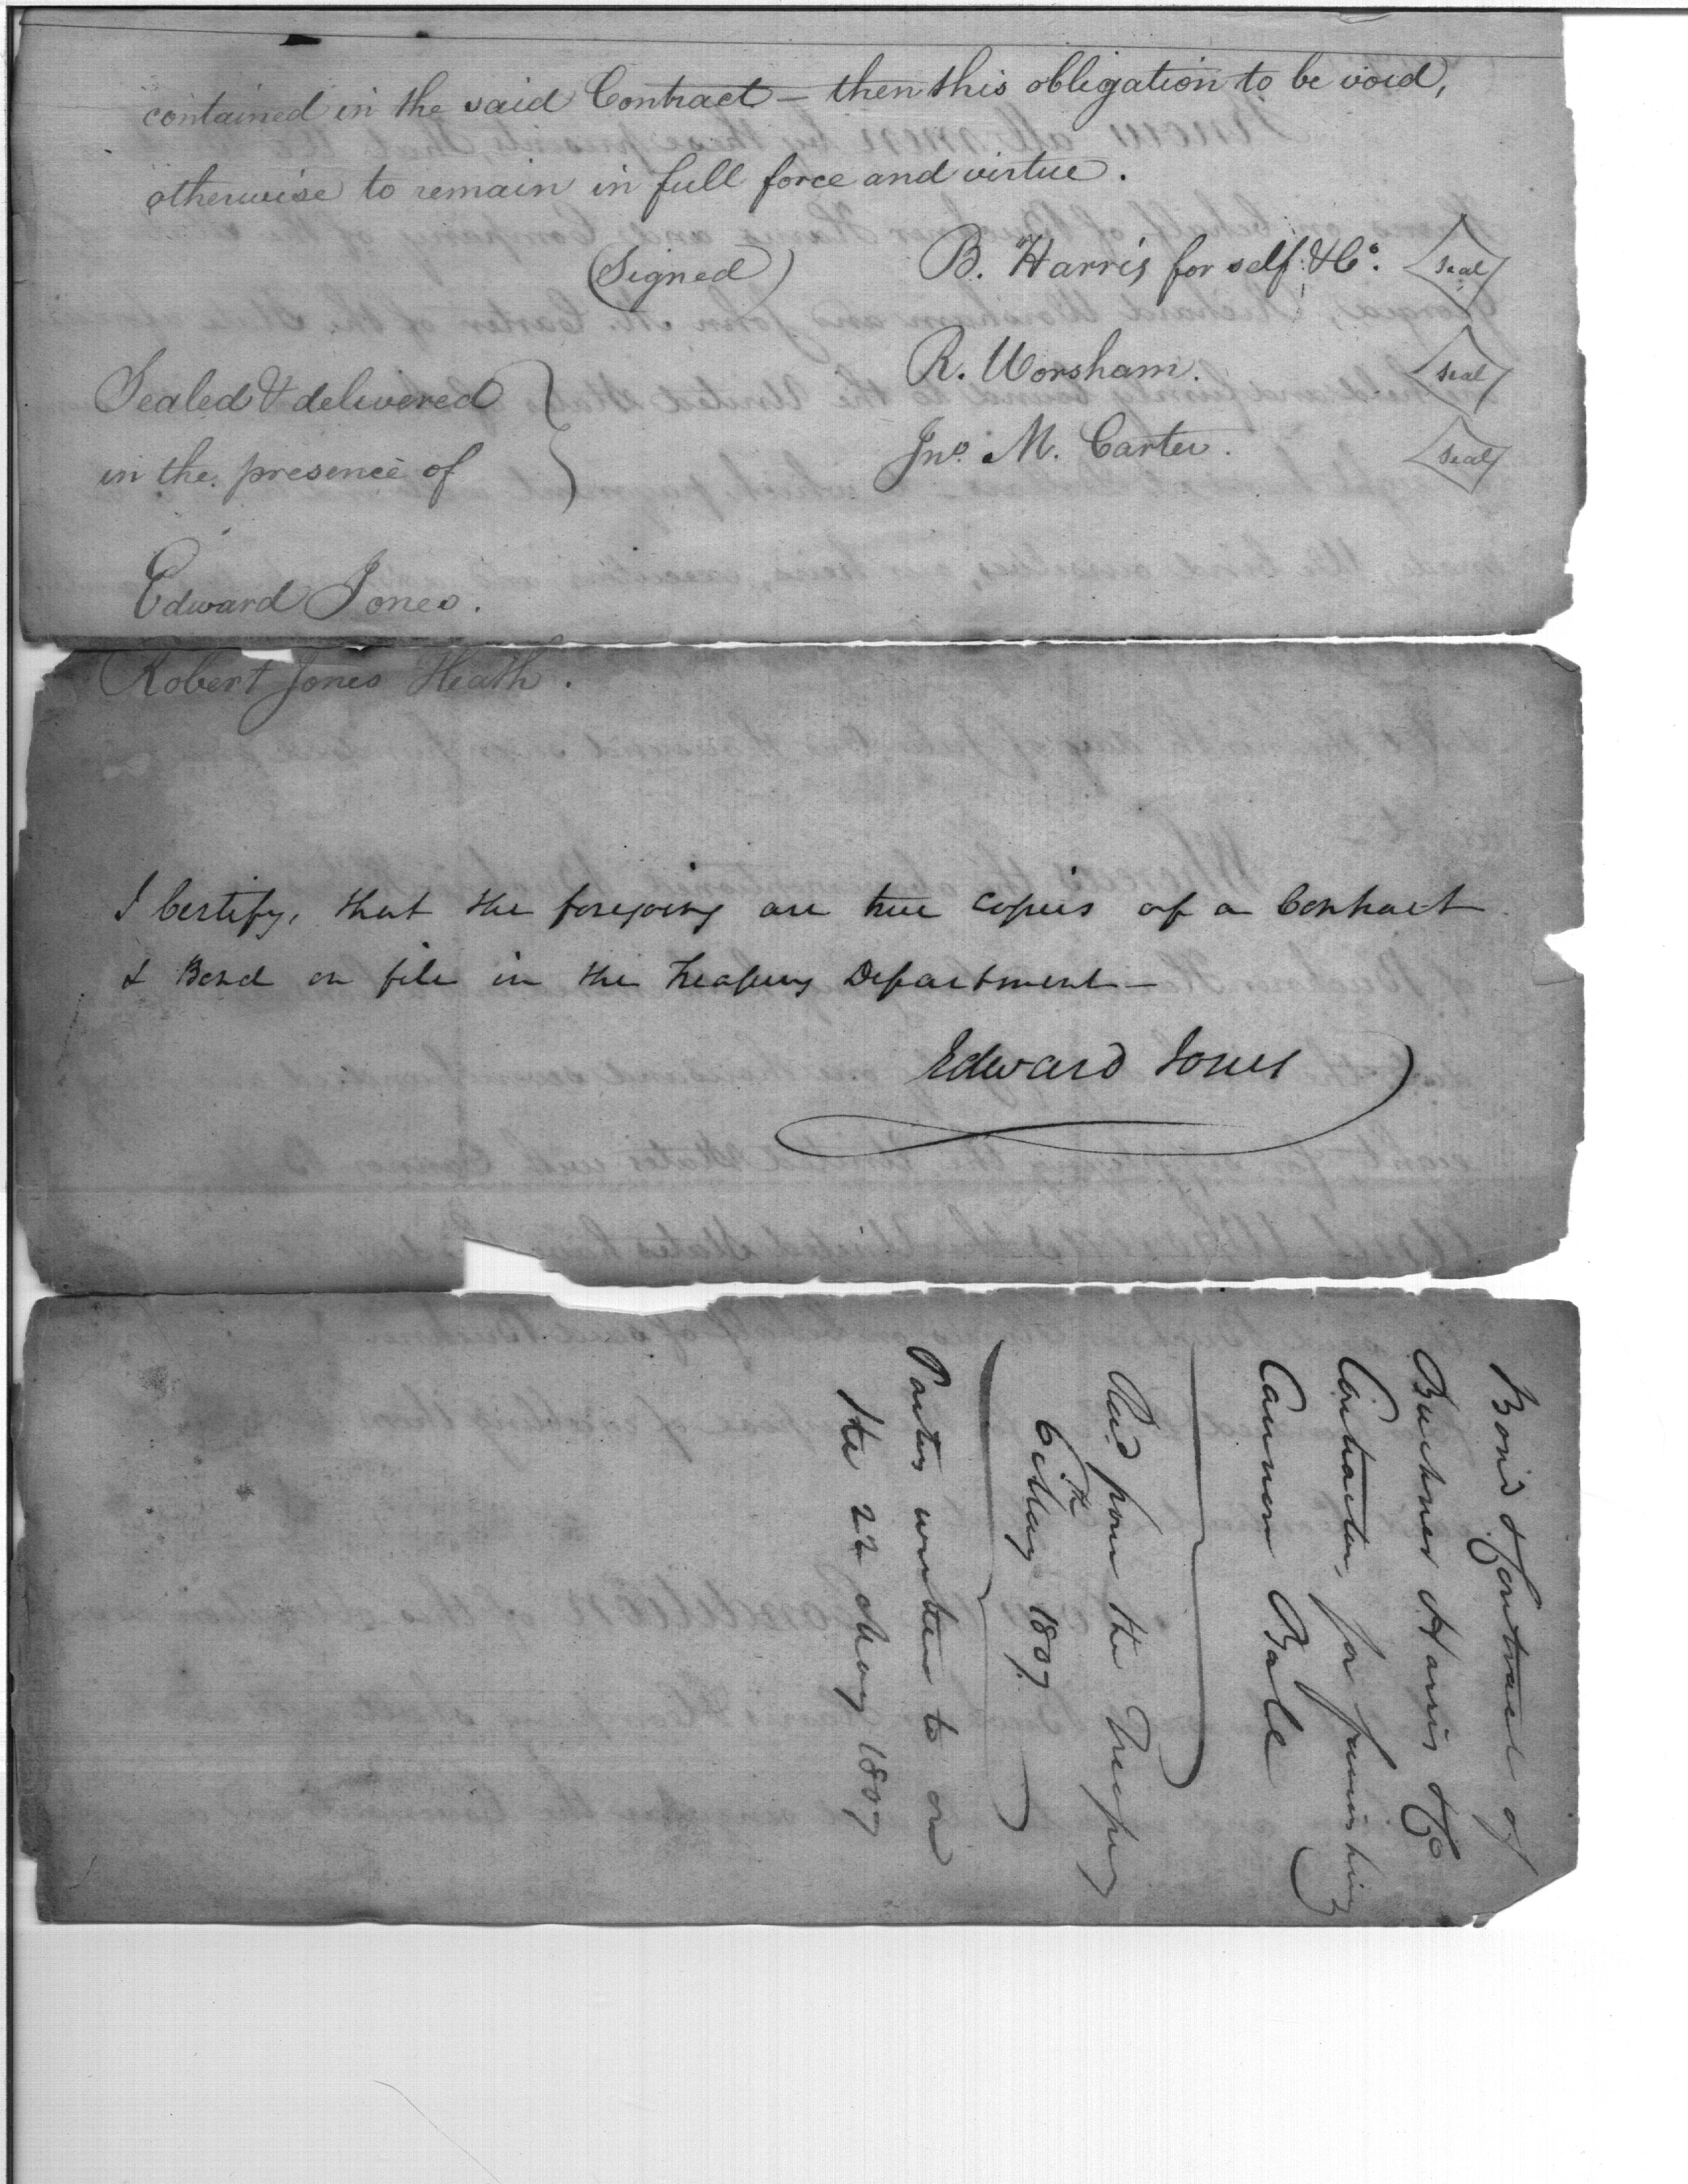 contained in the said Contract – then this obligation to be void,
otherwise to remain in full force and virtue.
(Signed) B. Harris for self & Co. Seal
R. Worsham. Seal
Sealed & delivered
in the presence of
Jno. M. Carter. Seal
Edward Jones.
Robert Jones Heath.
I Certify, that the foregoing are true copies of a Contract
& Bond on file in the Treasury Department –
Edward Jones
Bond & Contract of
Buckner Harris & Co
Contractors, for furnishing
Cannon Ball
Recd from the Treasury
6th May 1807
Parties written to on
the 22 May 1807